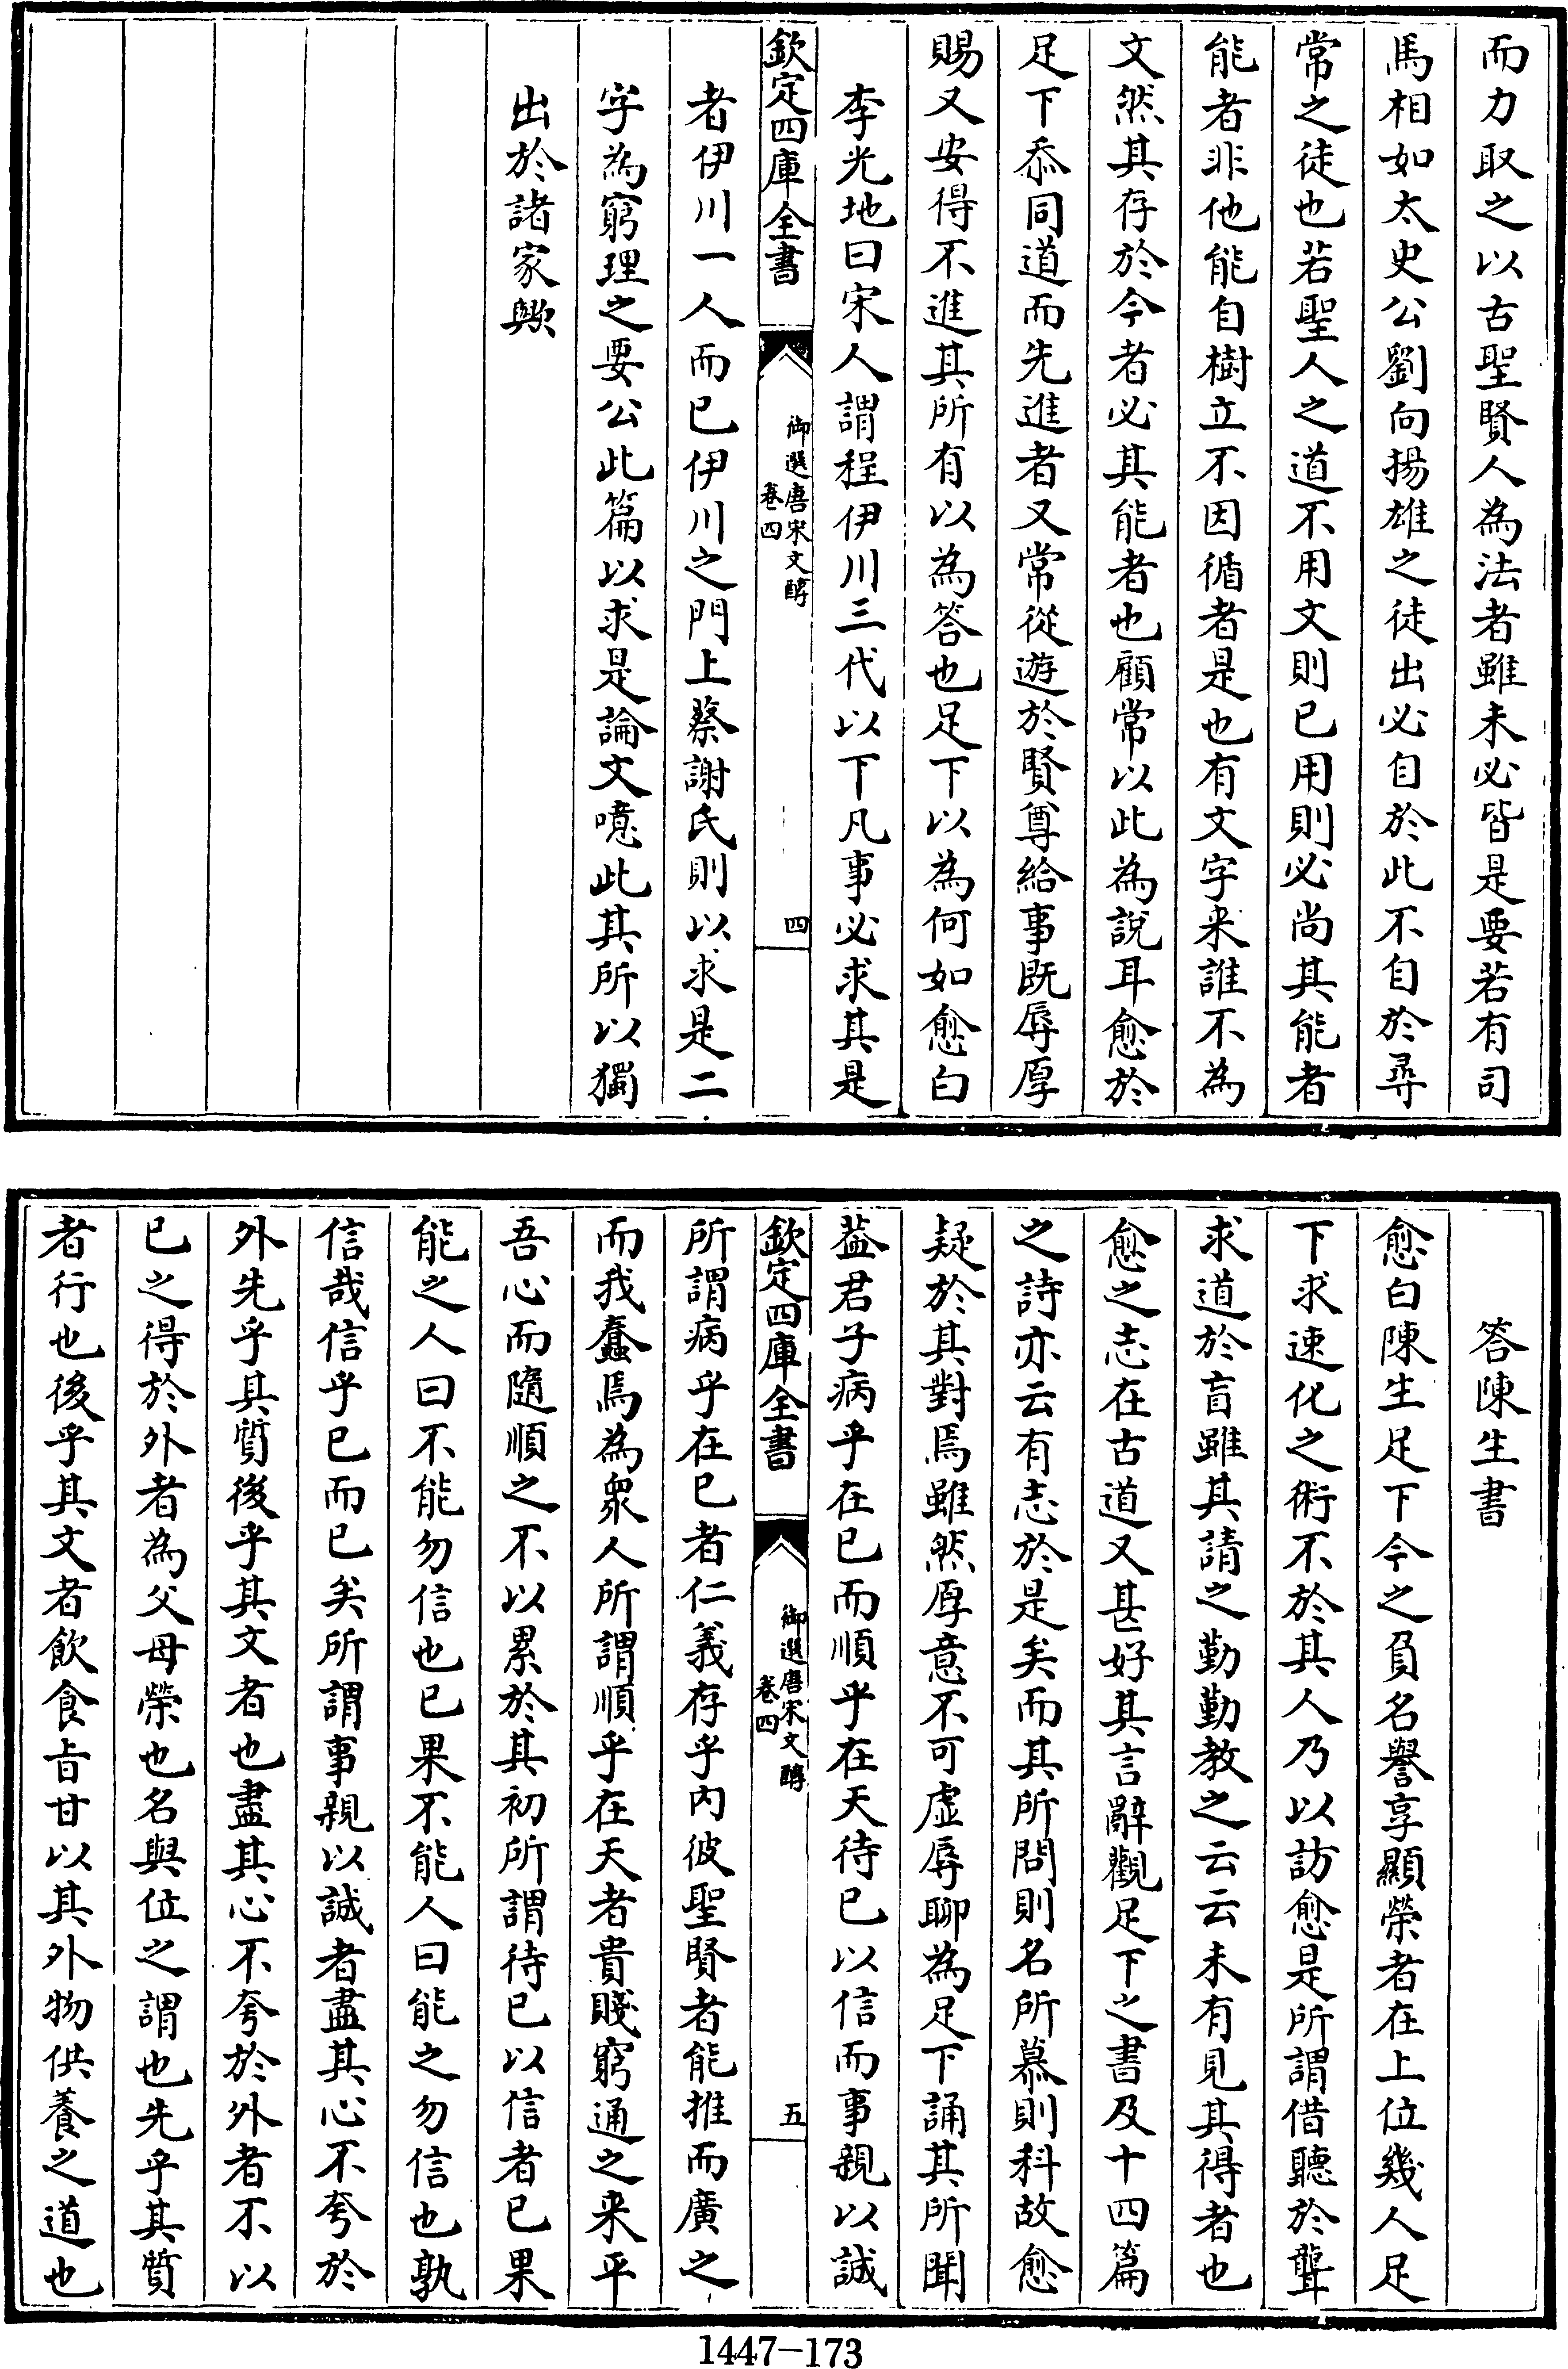 而力取之以古聖賢人為法者雖未必皆是要若有司
馬相如太史公劉向揚雄之徒出必自於此不自於尋
常之徒也若聖人之道不用文則已用則必尚其能者
能者非他能自樹立不因循者是也有文字来誰不為
文然其存於今者必其能者也顧常以此為說耳愈於
足下忝同道而先進者又常從遊於賢尊給事既辱厚
賜又安得不進其所有以為答也足下以為何如愈白
李光地曰宋人謂程伊川三代以下凡事必求其是
欽定四庫全書
御選唐宋文醇
卷四
四
者伊川一人而已伊川之門上蔡謝氏則以求是二
字為窮理之要公此篇以求是論文噫此其所以獨
出於諸家歟
答陳生書
愈白陳生足下今之負名譽享顯榮者在上位幾人足
下求速化之術不於其人乃以訪愈是所謂借聽於聾
求道於盲雖其請之勤勤教之云云未有見其得者也
愈之志在古道又甚好其言辭觀足下之書及十四篇
之詩亦云有志於是矣而其所問則名所慕則科故愈
疑於其對焉雖然厚意不可虛辱聊為足下誦其所聞
葢君子病乎在已而順乎在天待已以信而事親以誠
欽定四庫全書
御選唐宋文醇
卷四
五
所謂病乎在已者仁義存乎內彼聖賢者能推而廣之
而我蠢焉為衆人所謂順乎在天者貴賤窮通之来平
吾心而隨順之不以累於其初所謂待已以信者已果
能之人曰不能勿信也已果不能人曰能之勿信也孰
信哉信乎已而已矣所謂事親以誠者盡其心不夸於
外先乎其質後乎其文者也盡其心不夸於外者不以
已之得於外者為父母榮也名與位之謂也先乎其質
者行也後乎其文者飲食旨甘以其外物供養之道也
1447-173